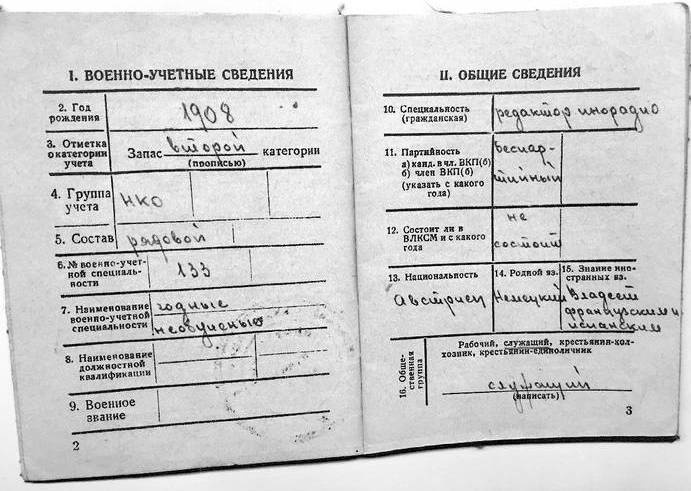 I. ВОЕННО-УЧЕТНЫЕ СВЕДЕНИЯ
2. Год
рождения
1908
3. Отметка
о категории
учета
Запас второй категории
(прописью)
4. Группа
учета
НКО
5. Состав
рядовой
6. № военно-учет-
ной специаль-
ности
133
7. Наименование
военно-учетной
специальности
годные
необученые
8. Наименование
должностной
квалификации
9. Военное
звание
2
II. ОБЩИЕ СВЕДЕНИЯ
10. Специальность
(гражданская)
редактор инорадио
11. Партийность
а) канд. в чл. ВКП(б)
б) член ВКП(б)
(указать с какого
года)
беспар-
тийный
12. Состоит ли в
ВЛКСМ и с какого
года
не
состоит
13. Национальность
Австриец
14. Родной яз.
Немецкий
15. Знание ино-
странных яз.
Владеет
французским и
испанским
16. Обще-
ственная
группа
Рабочий, служащий, крестьянин-кол-
хозник, крестьянин-единоличник
служащий
(написать)
3